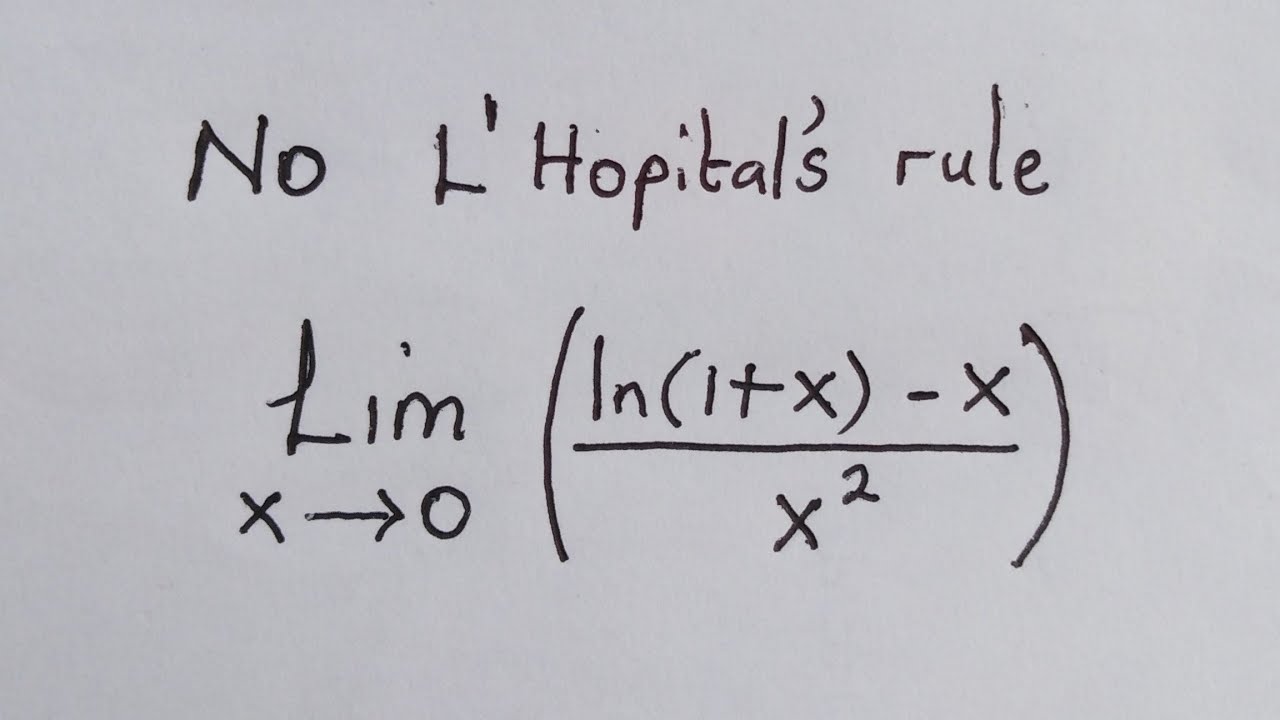 No L'Hopital's rule
Lim x→0 (ln(1+x) - x / x²)